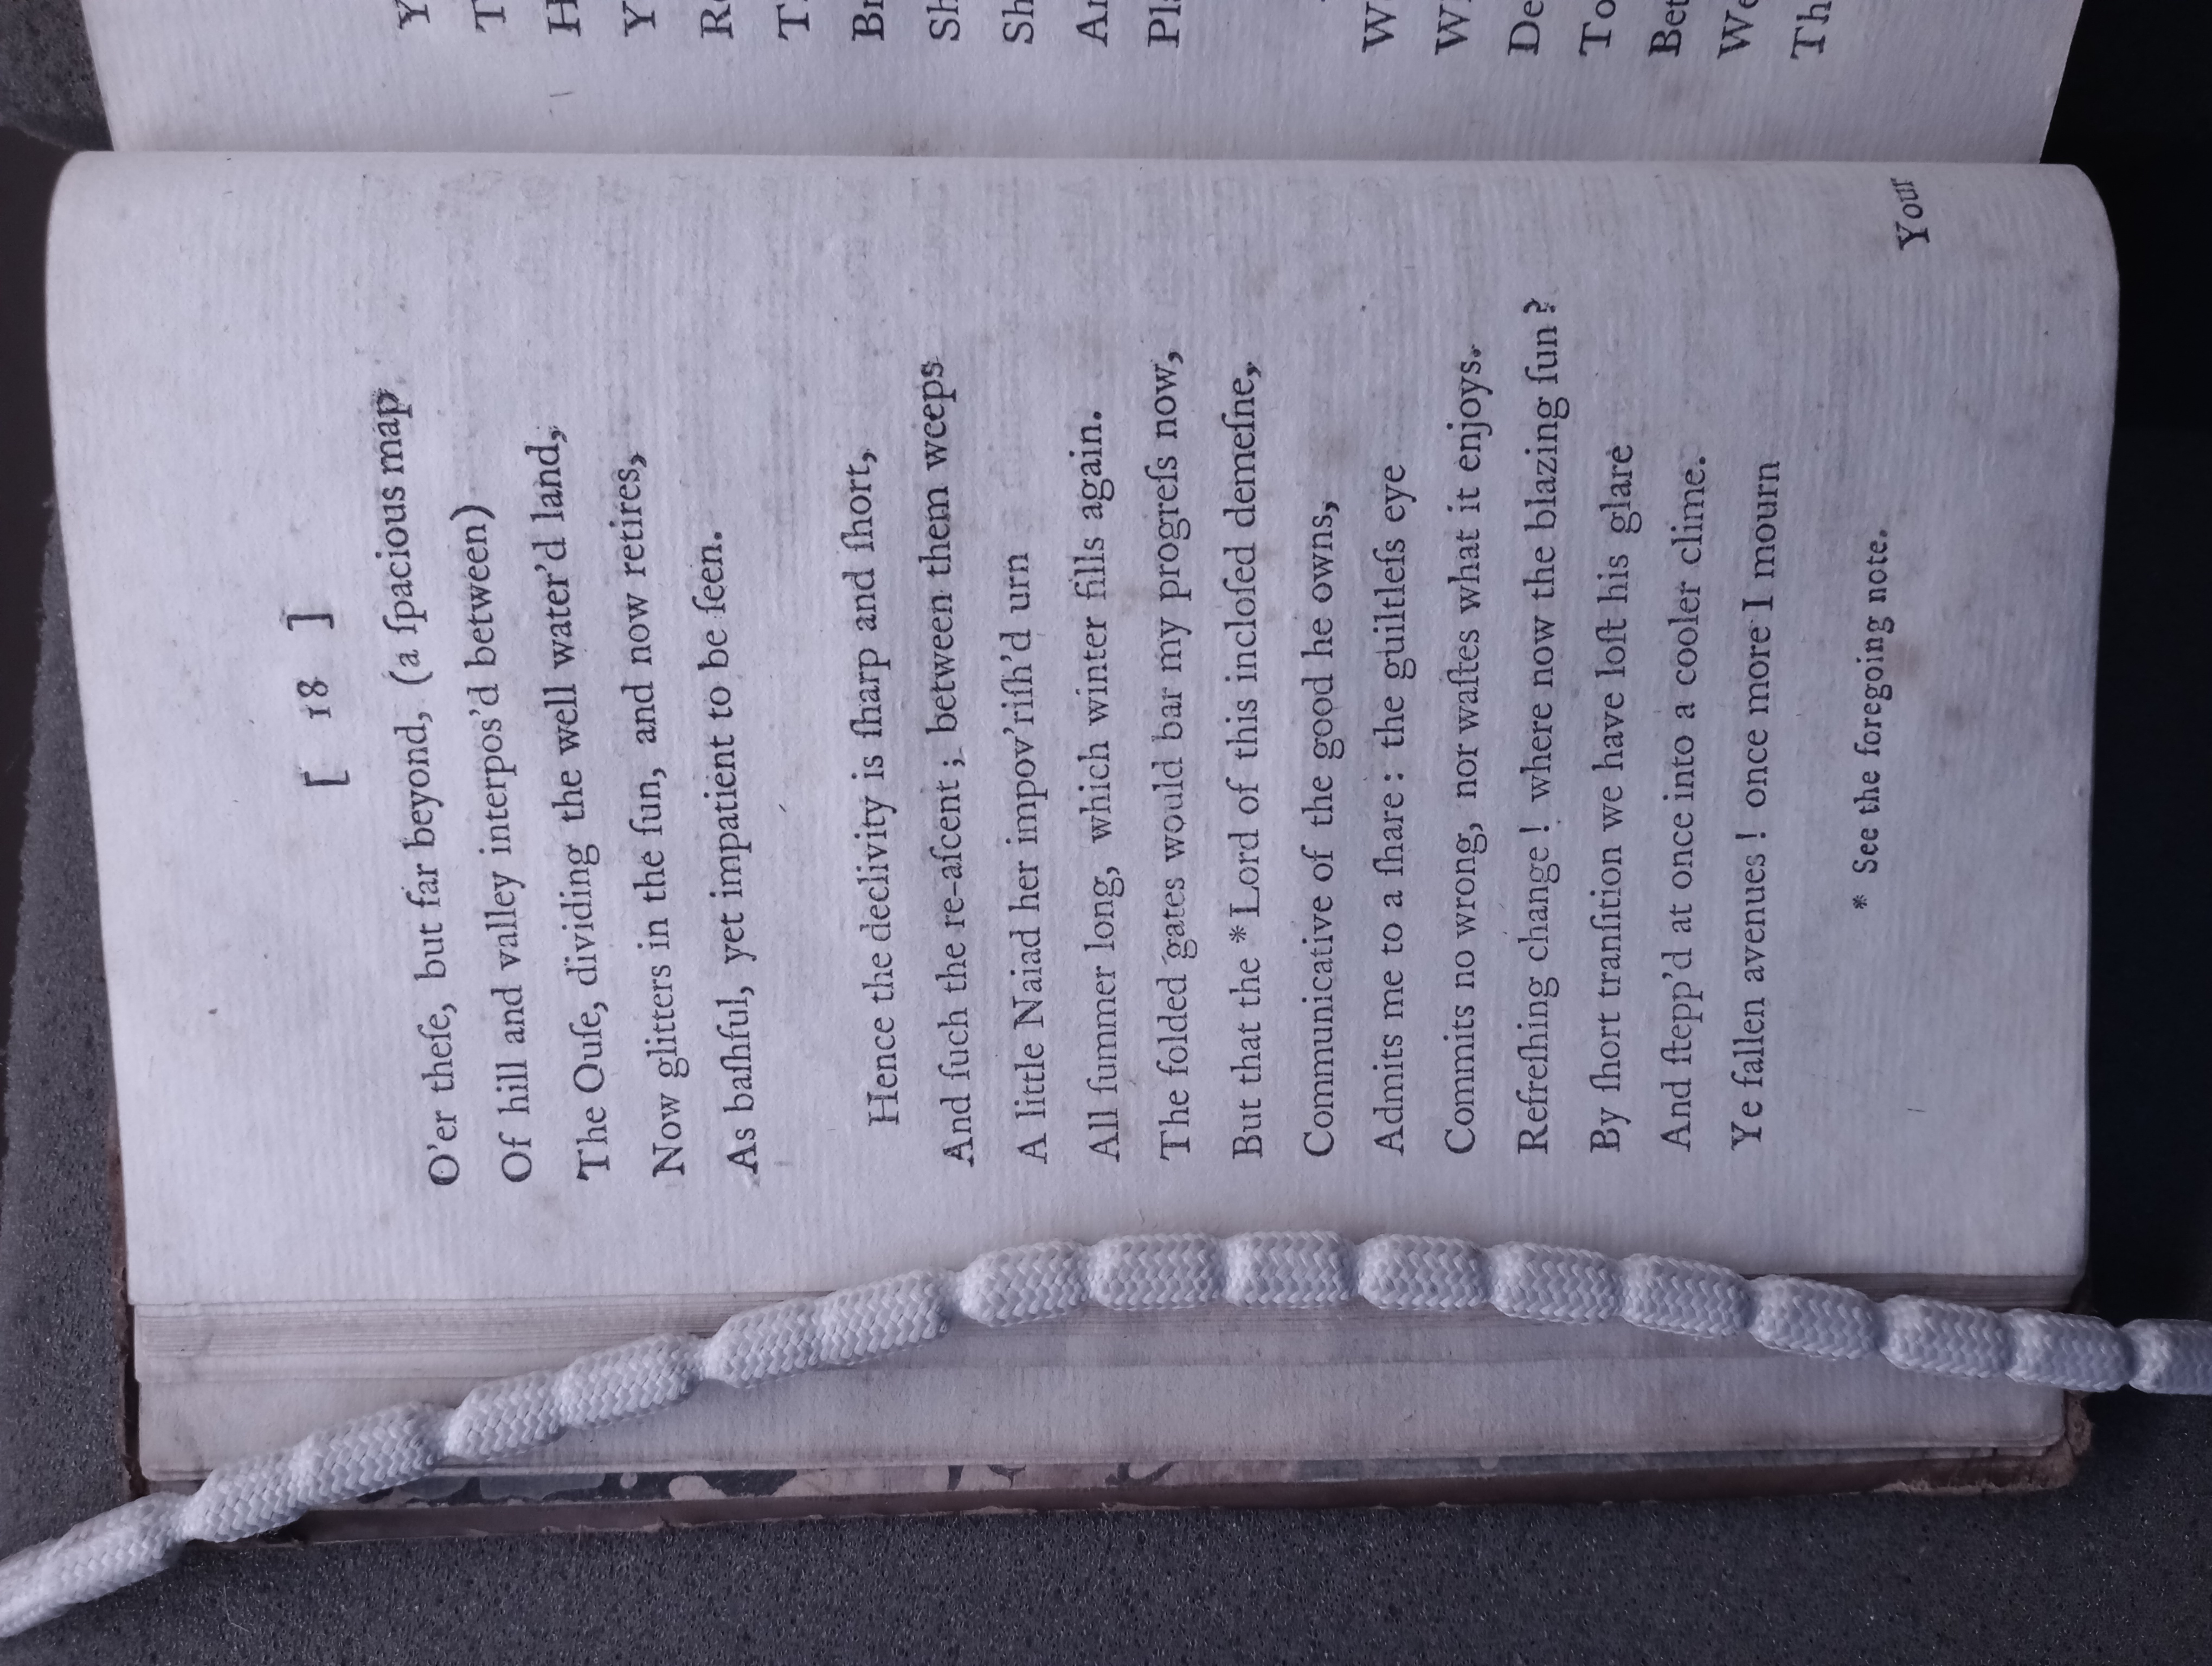 [ 18 ]
O'er theſe, but far beyond, (a ſpacious map
Of hill and valley interpos'd between)
The Ouſe, dividing the well water'd land,
Now glitters in the ſun, and now retires,
As baſhful, yet impatient to be ſeen.
Hence the declivity is ſharp and ſhort,
And ſuch the re-aſcent ; between them weeps
A little Naiad her impov'riſh'd urn
All ſummer long, which winter fills again.
The folded gates would bar my progreſs now,
But that the * Lord of this incloſed demeſne,
Communicative of the good he owns,
Admits me to a ſhare : the guiltleſs eye
Commits no wrong, nor waſtes what it enjoys.
Refreſhing change ! where now the blazing ſun ?
By ſhort tranſition we have loſt his glare
And ſtepp'd at once into a cooler clime.
Ye fallen avenues ! once more I mourn
* See the foregoing note.
Your